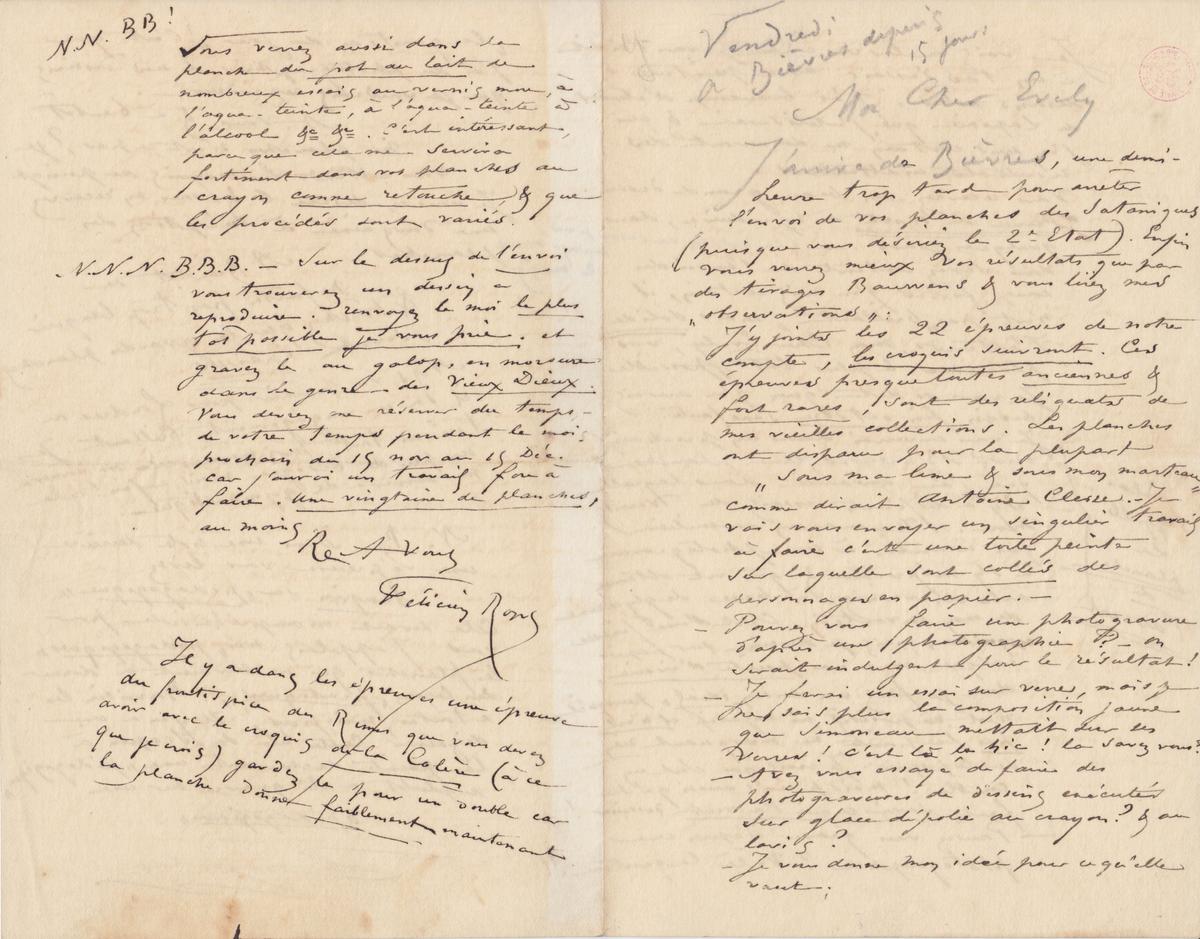 N.N. BB !
Vous verrez aussi dans la
planche du pot au lait de
nombreux essais au vernis mou, à
l'aqua-teinte, à l'aqua-teinte à
l'alcool &c &c. C'est intéressant,
parce que cela me servira
fortement dans vos planches au
crayon comme retouche, & que
les procédés sont variés.
N.N.N. B.B.B. – Sur le dessus de l'envoi
vous trouverez un dessin à
reproduire. renvoyez le moi le plus
tôt possible je vous prie. et
gravez le au galop, en morsure
dans le genre des Vieux Dieux.
Vous devrez me réserver du temps –
de votre temps pendant le mois
prochain du 15 nov au 15 Déc.
car j'aurai un travail fou à
faire. Une vingtaine de planches,
au moins
Re A Vous
Félicien Rops
Il y a dans les épreuves une épreuve
du frontispice des Rimes que vous devez
avoir avec le croquis de la Colère (à ce
que je crois) gardez le pour un double car
la planche donne faiblement maintenant
Vendredi
à Bièvres depuis
15 jours
Mon Cher Evely
J'arrive de Bièvres, une demi-
heure trop tard pour arrêter
l'envoi de vos planches des Sataniques
(puisque vous désiriez le 2e Etat). Enfin
vous verrez mieux vos résultats que par
des tirages Bauwens & vous lirez mes
„observations„:
J'y joints les 22 épreuves de notre
compte, les croquis suivront. Ces
épreuves presque toutes anciennes &
fort rares, sont des reliquats de
mes vieilles collections. Les planches
ont disparu pour la plupart
„Sous ma lime & sous mon marteau„
comme dirait Antoine Clesse. – Je
vais vous envoyer un singulier travail
à faire c'est une toile peinte
sur laquelle sont collés des
personnages en papier. –
– Pouvez vous faire une photogravure
d'après une photographie ?? – on
serait indulgent pour le résultat !
– Je ferai un essai sur verre, mais je
ne sais plus la composition jaune
que Simoneau mettait sur ses
verres ! C'est là le hic ! la savez vous ?
– Avez vous essayé de faire des
photogravures de dessins exécutés
sur glace dépolie au crayon ? & au
lavis ?
– Je vous donne mon idée pour ce qu'elle
vaut ;